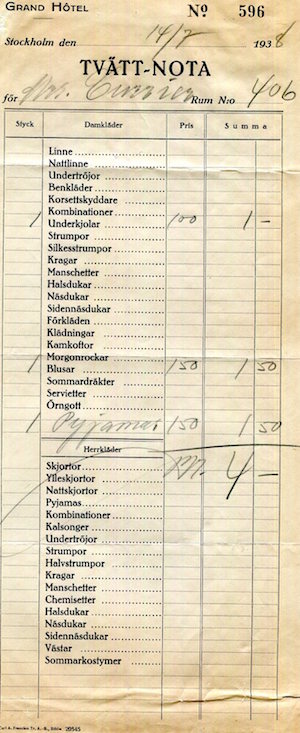 GRAND HÔTEL Nº 596
Stockholm den 14/7 1938
TVÄTT-NOTA
för Mrs. Currier Rum N:o 406
Styck Damkläder Pris Summa
Linne
Nattlinne
Undertröjor
Benkläder
Korsettskyddare
Kombinationer
1 Underkjolar 1 00 1 –
Strumpor
Silkesstrumpor
Kragar
Manschetter
Halsdukar
Näsdukar
Sidennäsdukar
Förkläden
Klädningar
Kamkoftor
Morgonrockar
1 Blusar 1 50 1 50
Sommardräkter
Servietter
Örngott
1 Pyjamas 1 50 1 50
Herrkläder Kr. 4 –
Skjortor
Ylleskjortor
Nattskjortor
Pyjamas
Kombinationer
Kalsonger
Undertröjor
Strumpor
Halvstrumpor
Kragar
Manschetter
Chemisetter
Halsdukar
Näsdukar
Sidennäsdukar
Västar
Sommarkostymer
Tr. A.-B., 20545